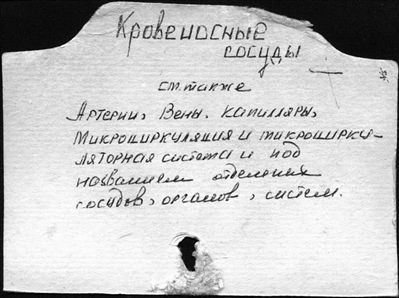 Кровеносные
сосуды
см. также
Артерии, Вены, Капилляры,
Микроциркуляция и микроцирку-
ляторная система и под
названием отдельных
сосудов, органов, систем.